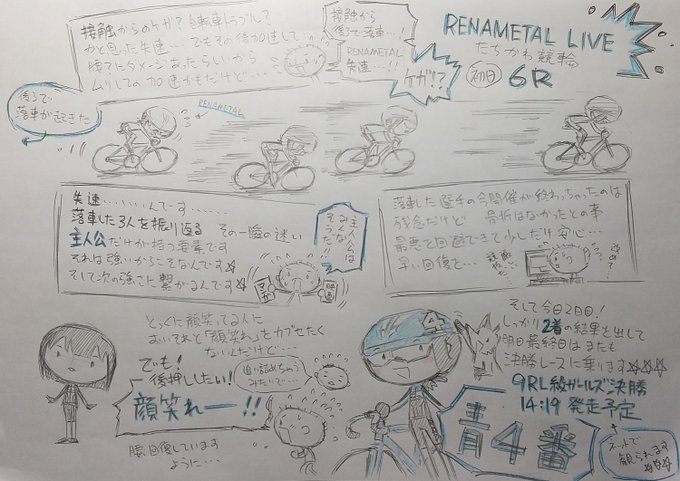 接触からのケガ?自転車トラブル?
かと思った失速…でもその後加速して
勝てにダメージあったらしいから
ムリしての加速かもだけど…
接触から
後ろで落車…!
RENAMETAL
失速…!!
ケガ!?
RENAMETAL LIVE
たちかわ競輪
初日 6R
後ろで
落車が起きた
RENAMETAL
失速…いいんでーす……
落車した3人を振り返る その一瞬の迷い
主人公だけが持つ要素です
それは強いからこそなんです☆
そして次の強さに繋がるんです☆
主人公は
みんな
そうだ!!
マンガ
映画
落車した選手の今開催が終わっちゃったのは
残念だけど 骨折はなかったとの事
最悪を回避できて少しだけ安心…
早い回復を…
とっくに顔笑ってる人に
おいそれと「顔笑れ」をカブせたく
ないんだけど…
でも!
後押ししたい!
顔笑れー!!
追い詰めちゃう
みたいで…
腰、回復しています
ように…
そして今日2日目!
しっかり2着の結果を出して
明日最終日はまたも
決勝レースに乗ります☆☆☆
9R L級ガールズ決勝
14:19 発走予定
青4番
4
ネットで
観られます
☆☆☆